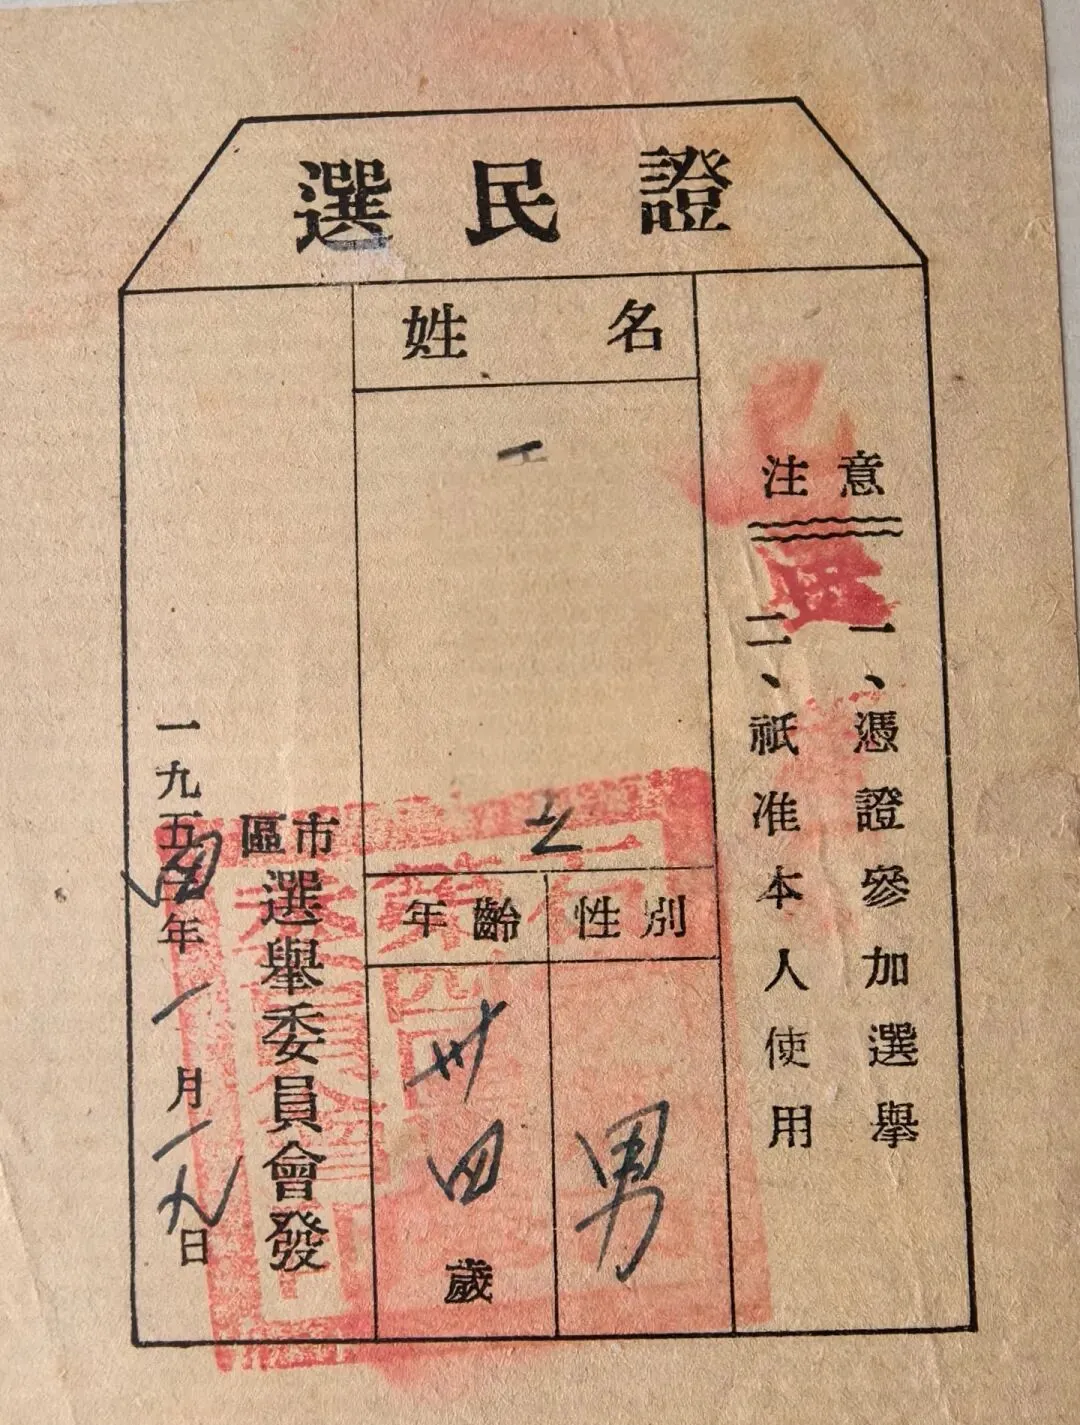 選民證
姓名
注意
一、憑證參加選舉
二、祇准本人使用
性別
男
年齡
卅四歲
市區選舉委員會發
一九五四年一月一九日